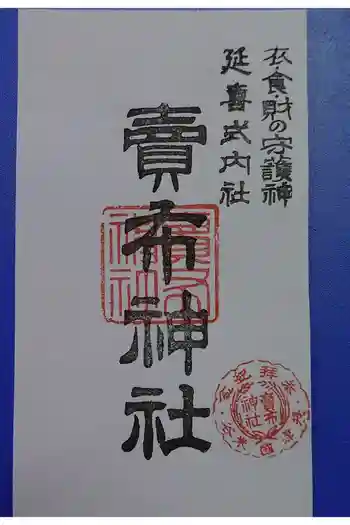 衣・食・財の守護神
延喜式内社
賣布神社
賣布神社
賣布神社